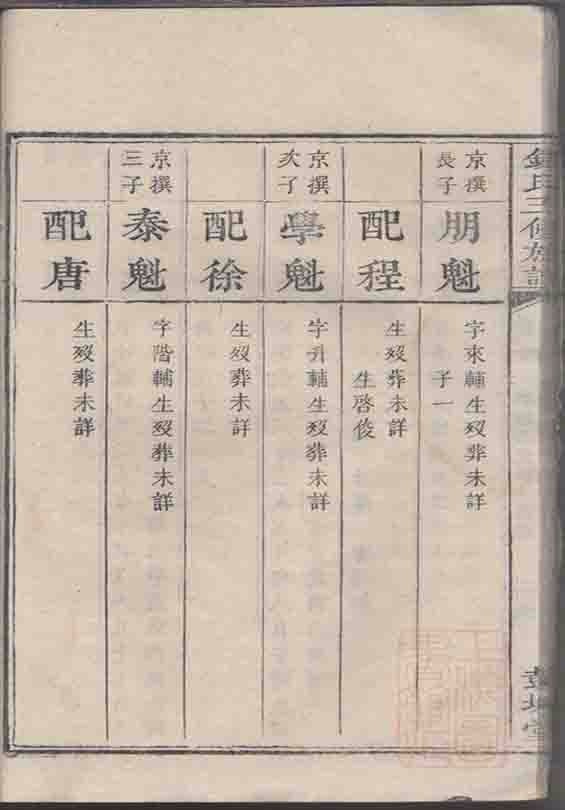 三修族
京撰
長子
朋魁
字來輔生歿葬未詳
子一
配程
生歿葬未詳
生啓俊
京撰
次子
學魁
字升輔生歿葬未詳
配徐
生歿葬未詳
京撰
三子
泰魁
字階輔生歿葬未詳
配唐
生歿葬未詳